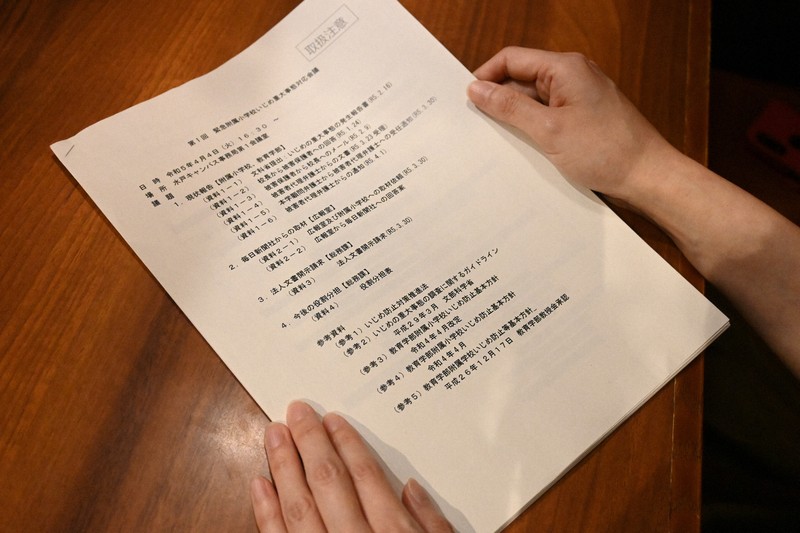 取扱注意
第1回 緊急附属小学校いじめ重大事態対応会議
日 時 令和5年4月4日(火)16:30 ~
場 所 水戸キャンパス事務局第1会議室
議 題
1.現状報告【附属小学校,教育学部】
(資料1-1) 文科省提出:いじめの重大事態の発生報告書(R5.2.16)
(資料1-2) 校長から被害保護者への回答(R5.1.24)
(資料1-3) 被害保護者から校長へのメール(R5.2.9)
(資料1-4) 本学顧問弁護士からの文書(R5.3.23受理)
(資料1-5) 被害者代理弁護士から被害者代理弁護士への受任通知(R5.3.30)
(資料1-6) 被害者代理弁護士からの通知(R5.4.1)
2.毎日新聞社からの取材【広報室】
(資料2-1) 広報室及び附属小学校への取材依頼(R5.3.30)
(資料2-2) 広報室から毎日新聞社への回答案
3.法人文書開示請求【総務課】
(資料3) 法人文書開示請求(R5.3.30)
4.今後の役割分担【総務課】
(資料4) 役割分担表
参考資料
(参考1)いじめ防止対策推進法
(参考2)いじめの重大事態の調査に関するガイドライン
平成29年3月 文部科学省
(参考3)教育学部附属小学校いじめ防止基本方針
令和4年4月改定
(参考4)教育学部附属小学校いじめ防止基本方針
令和4年4月
(参考5)教育学部附属学校いじめ防止等基本方針
平成26年12月17日 教育学部教授会承認